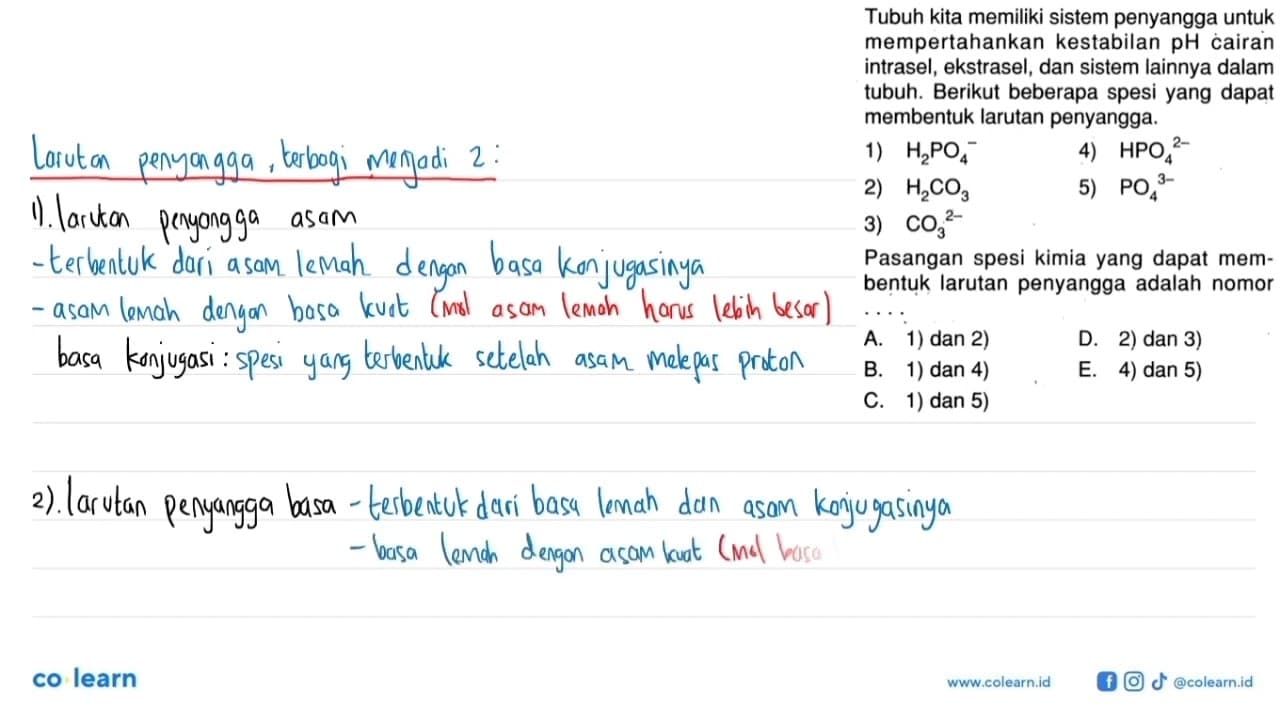 Tubuh kita memiliki sistem penyangga untuk
mempertahankan kestabilan pH cairan
intrasel, ekstrasel, dan sistem lainnya dalam
tubuh. Berikut beberapa spesi yang dapat
membentuk larutan penyangga.
1) H₂PO₄⁻ 4) HPO₄²⁻
2) H₂CO₃ 5) PO₄³⁻
3) CO₃²⁻
Pasangan spesi kimia yang dapat mem-
bentuk larutan penyangga adalah nomor
....
A. 1) dan 2) D. 2) dan 3)
B. 1) dan 4) E. 4) dan 5)
C. 1) dan 5)
Larutan penyangga, terbagi menjadi 2:
1). larutan penyangga asam
- terbentuk dari asam lemah dengan basa konjugasinya
- asam lemah dengan basa kuat (mol asam lemah harus lebih besar)
basa konjugasi : spesi yang terbentuk setelah asam melepas proton
2). larutan penyangga basa - terbentuk dari basa lemah dan asam konjugasinya
- basa lemah dengan asam kuat (mol basa
co learn
www.colearn.id
@colearn.id